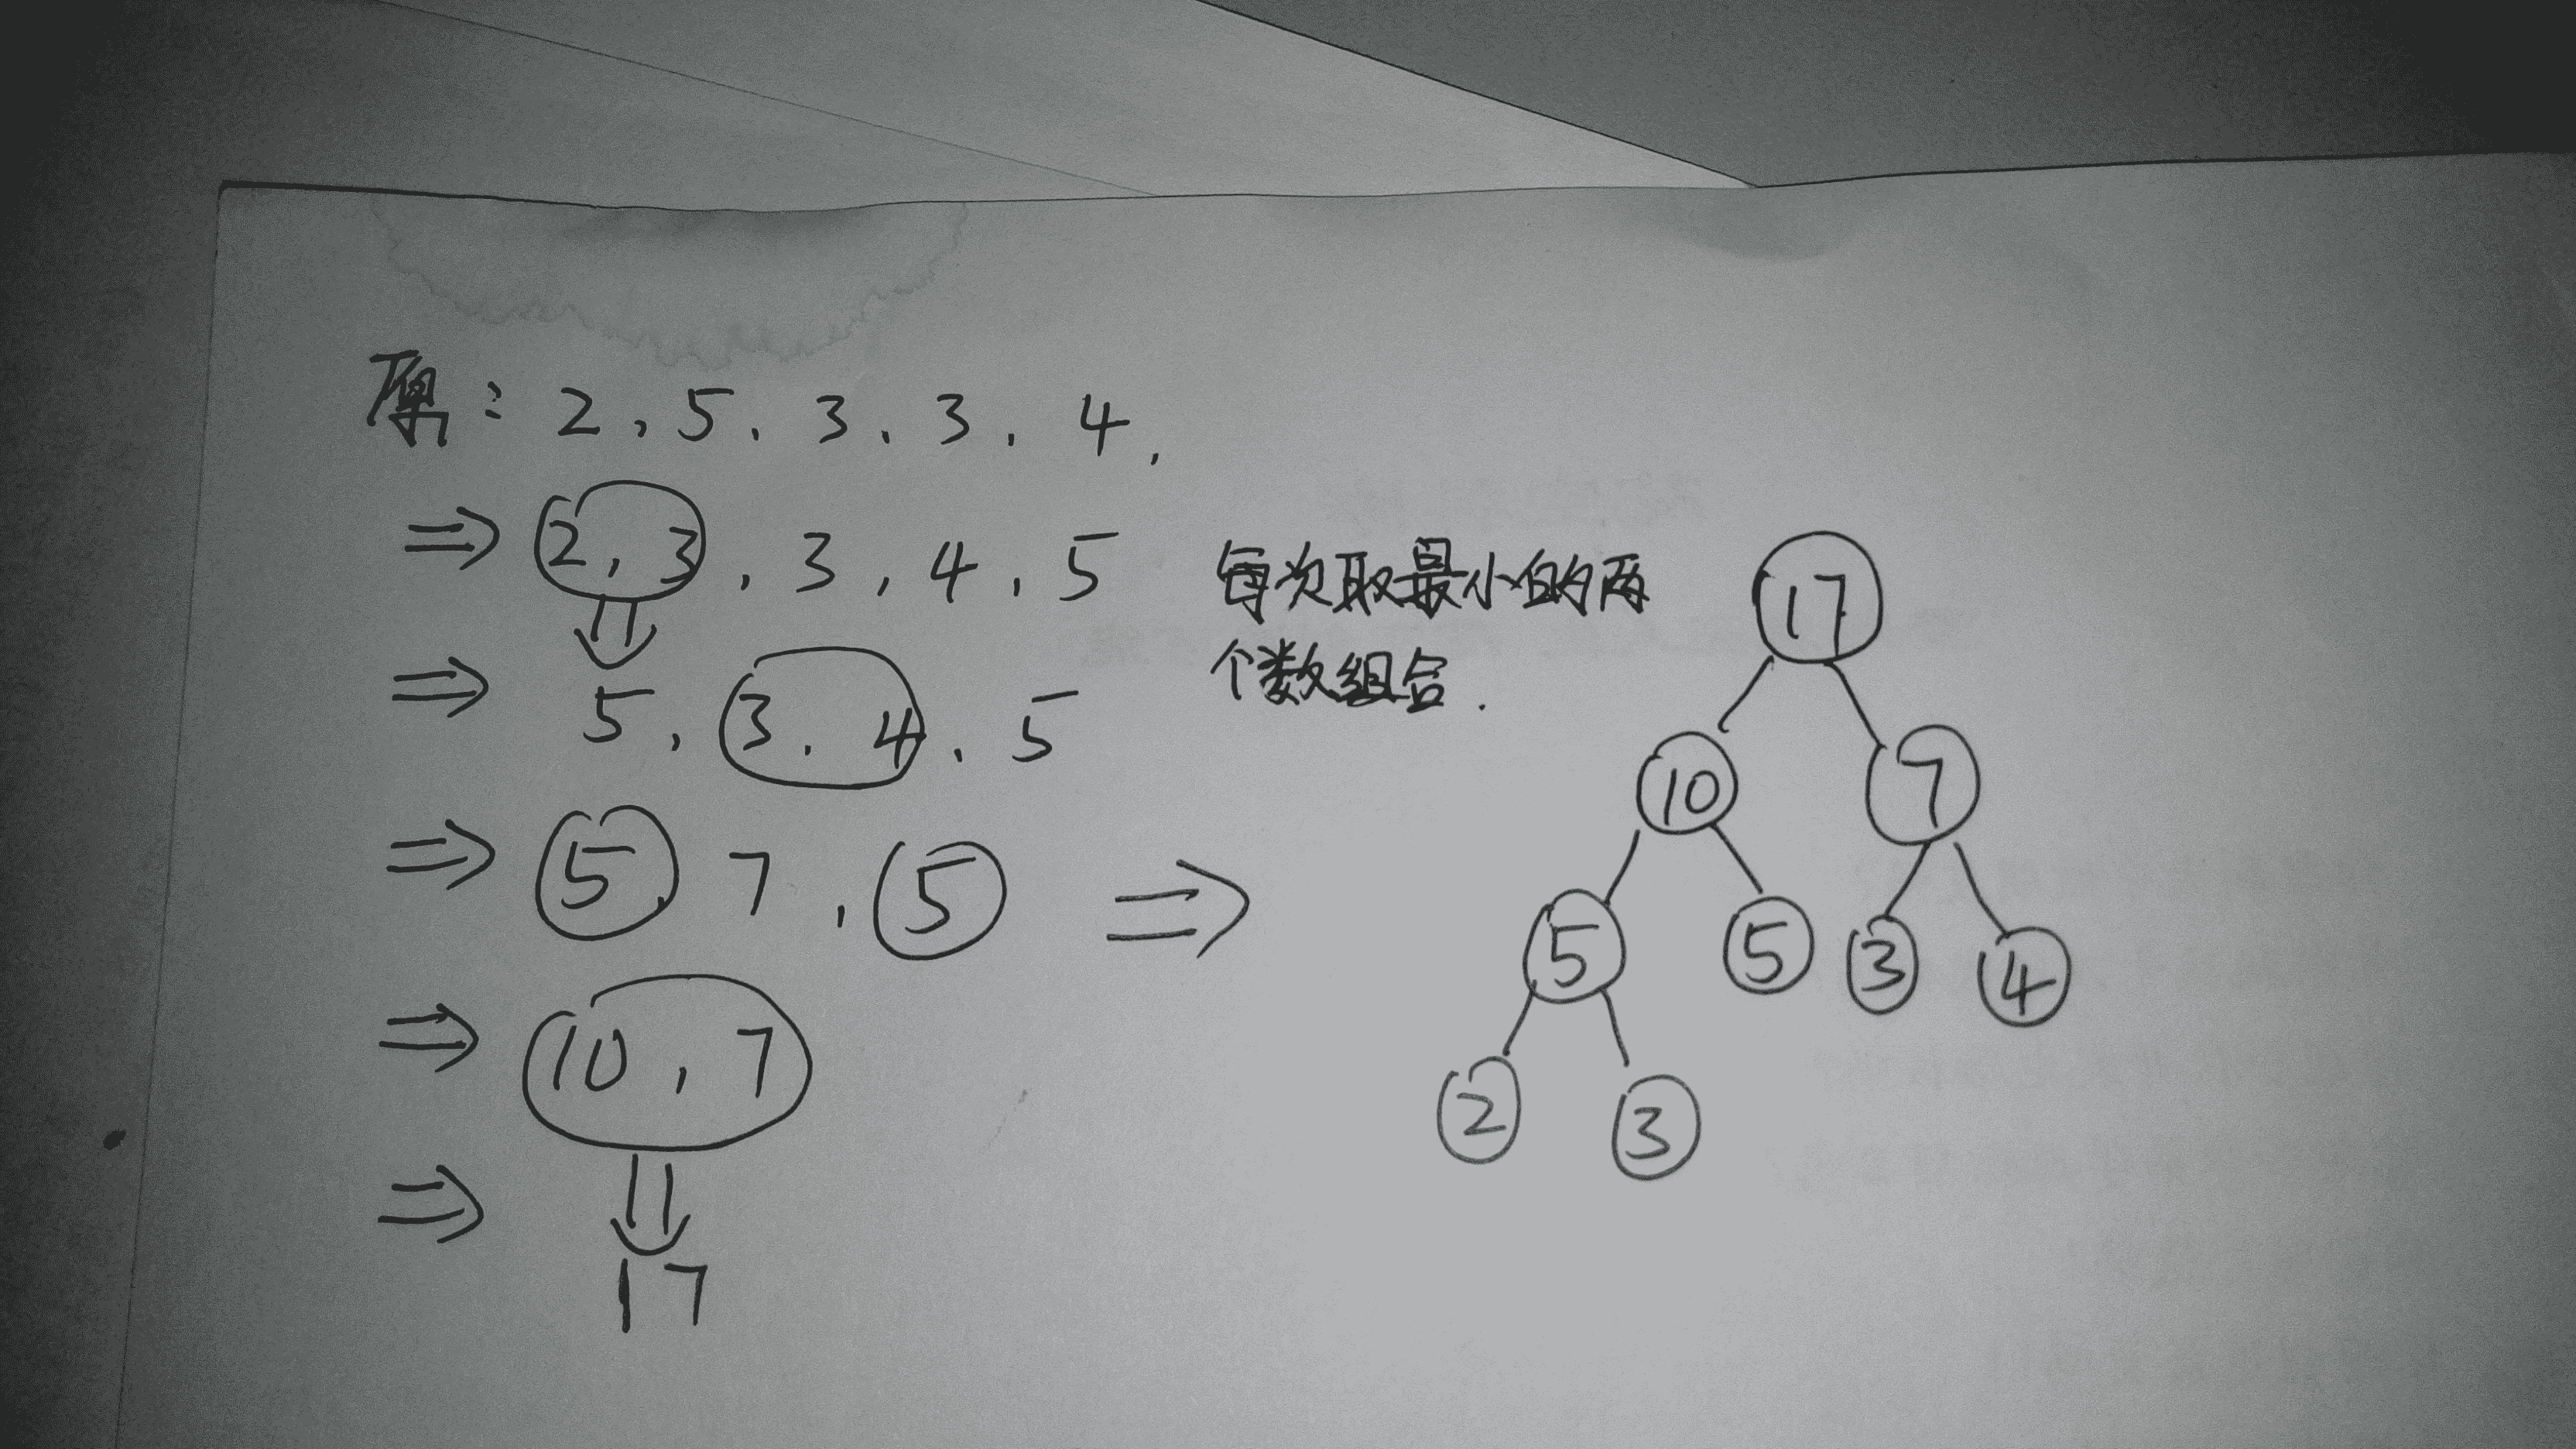 原：2，5．3．3．4．
⇒ 2，3，3，4，5
⇒ 5，3．4．5
⇒ 5，7，5 ⇒
⇒ 10，7
⇒ 17
每次取最小的两
个数组合．
17
10 7
5 5 3 4
2 3